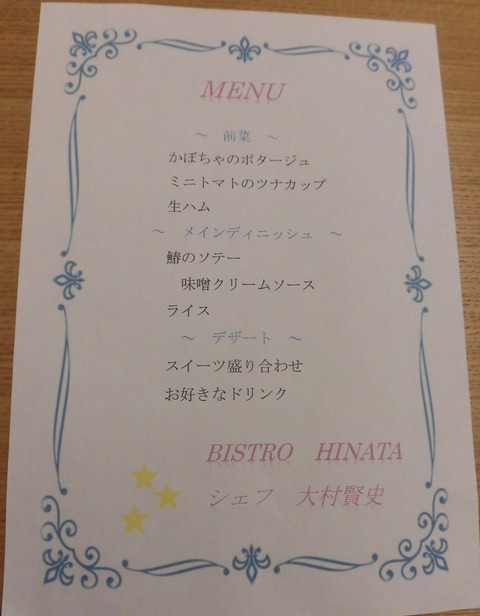 MENU
～　前菜　～
かぼちゃのポタージュ
ミニトマトのツナカップ
生ハム
～　メインディニッシュ　～
鰆のソテー
味噌クリームソース
ライス
～　デザート　～
スイーツ盛り合わせ
お好きなドリンク
BISTRO　HINATA
シェフ　大村賢史